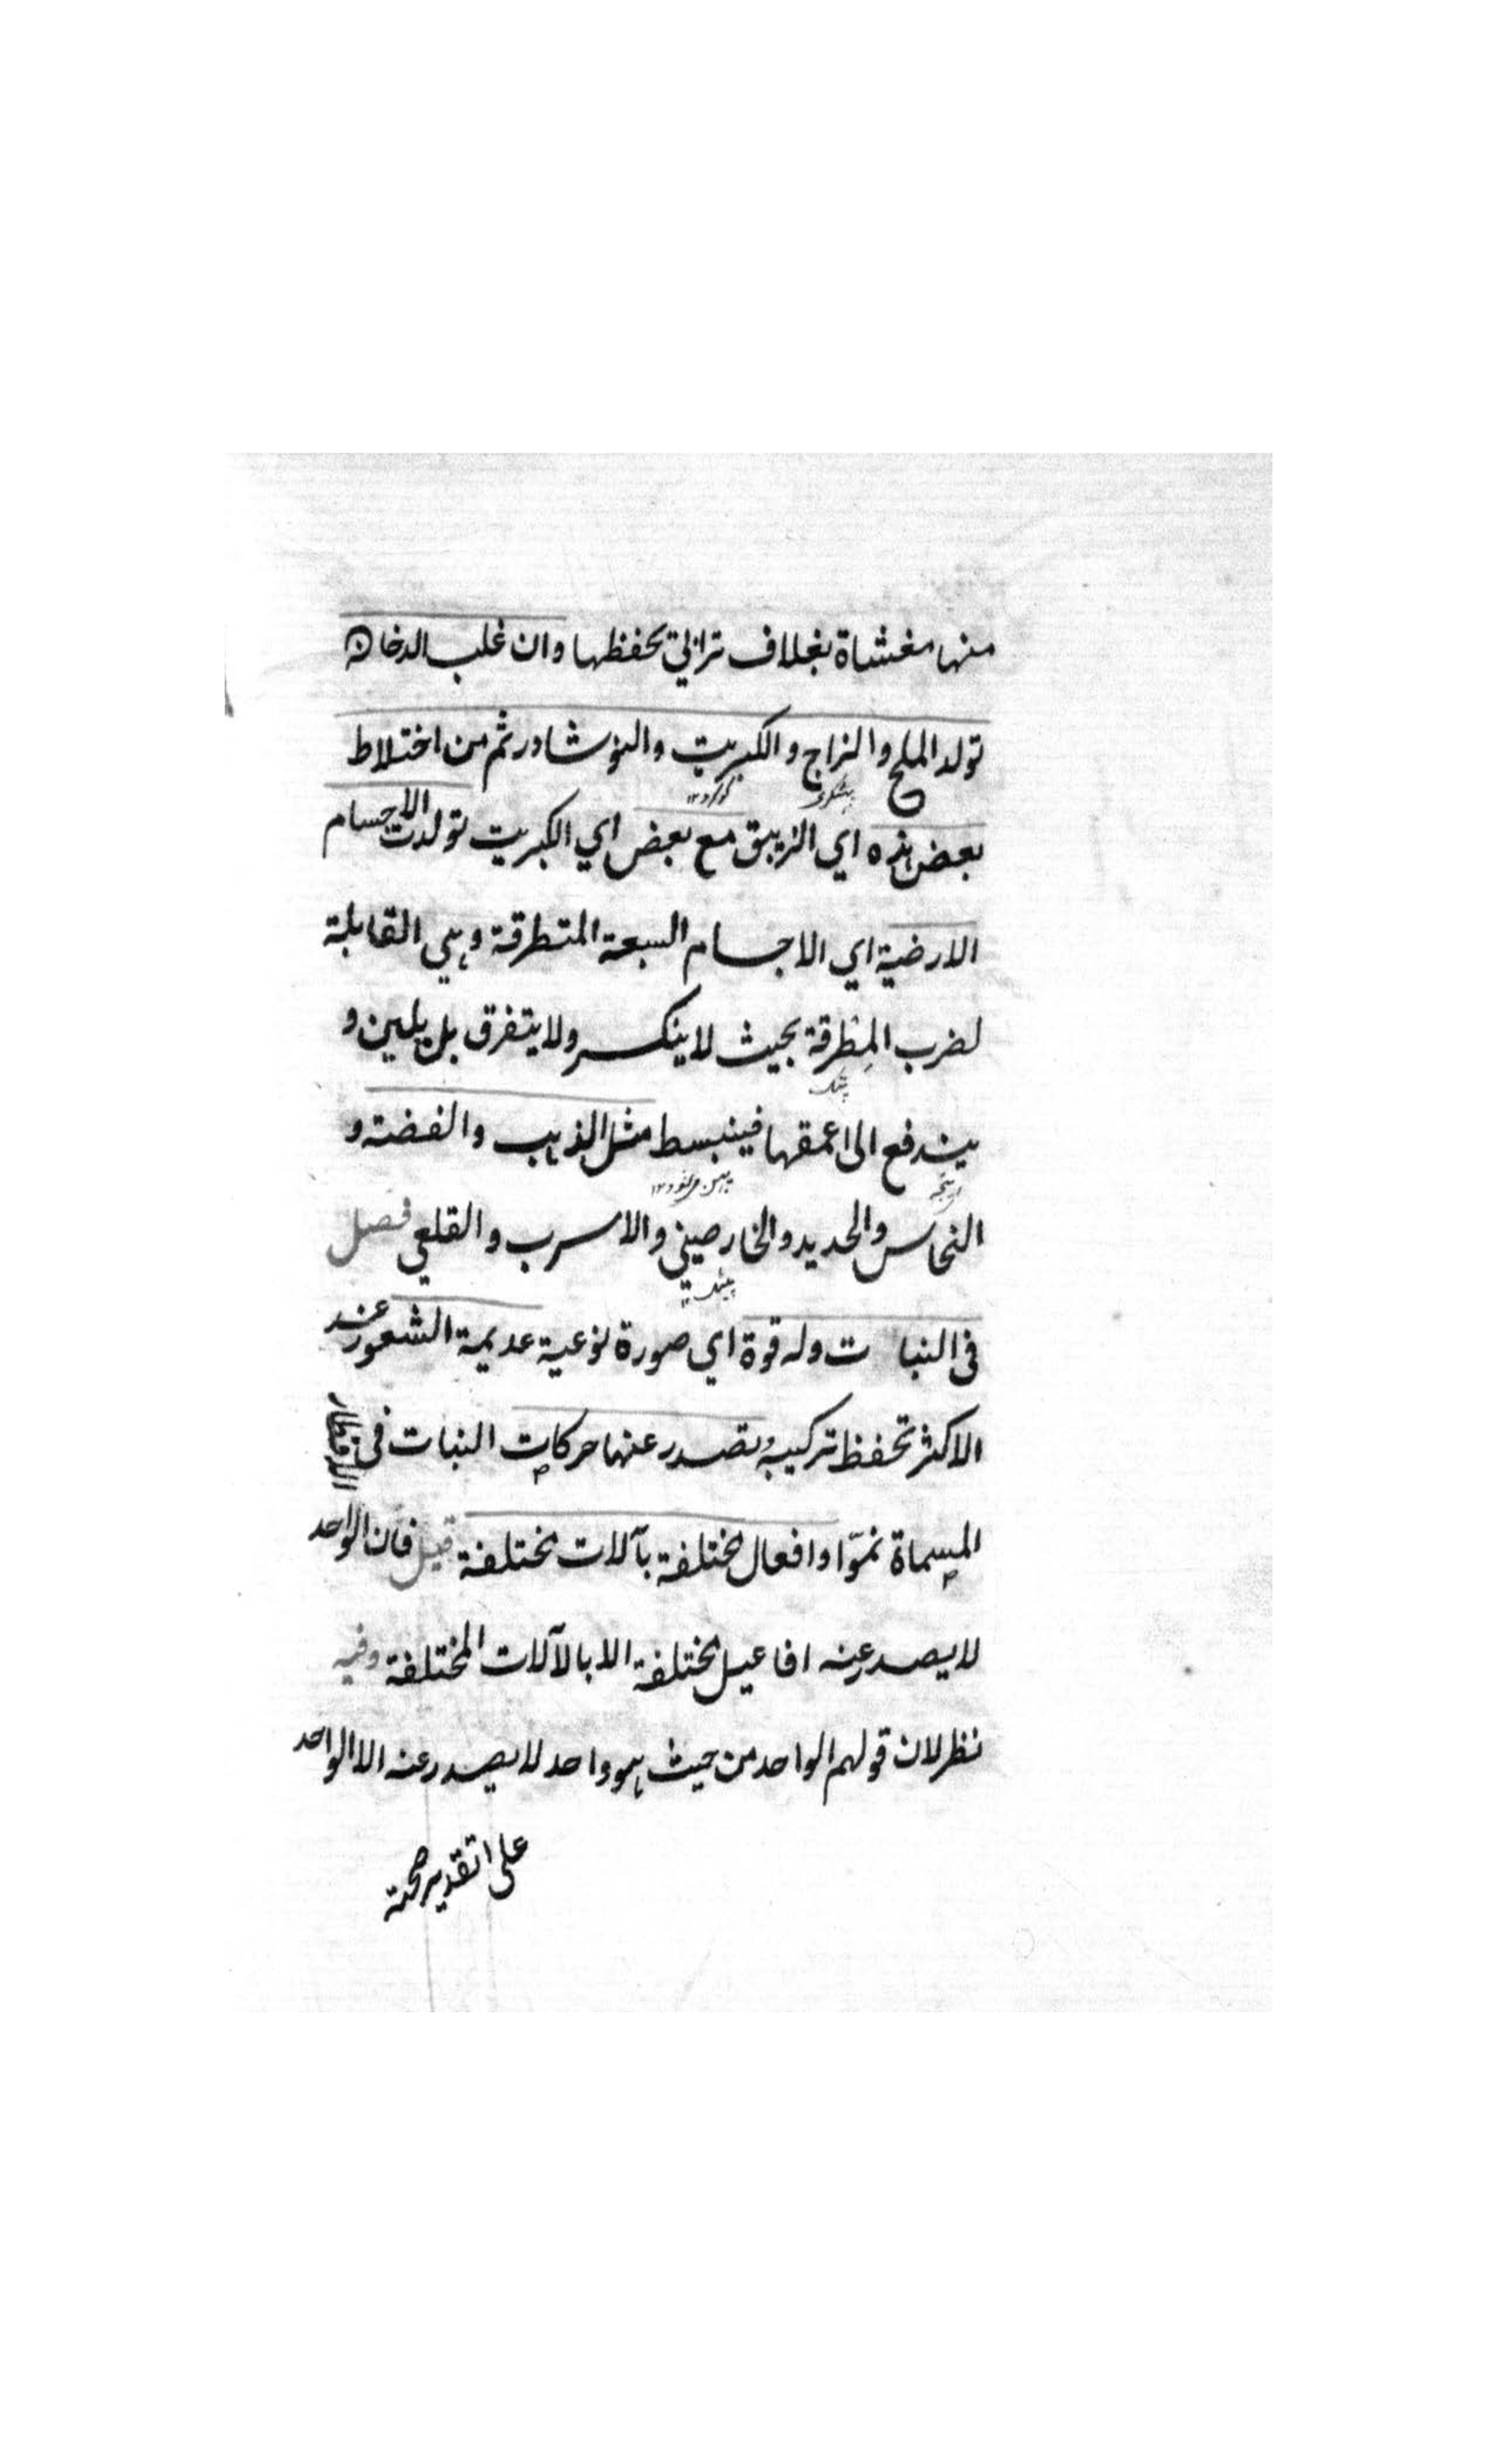 منها مغشاة بغلاف ترابي يحفظها وان غلب الدخان
تولد الملح والزاج والكبريت والنوشادر ثم من اختلاط
بعض هذه اي الزيبق مع بعض اي الكبريت تولدت الاجسام
الارضية اي الاجسام السبعة المتطرقة وهي القابلة
لضرب المطرقة بحيث لا ينكسر ولا يتفرق بل يلين و
يندفع الى اعمقها فينبسط مثل الذهب والفضة و
النحاس والحديد والخارصيني والاسرب والقلعي فصل
في النبات وله قوة اي صورة نوعية عديمة الشعور عند
الاكثر تحفظ تركيبه وتصدر عنها حركات النبات في الاقطار
المسماة نموّا وافعال مختلفة بآلات مختلفة قيل فان الواحد
لا يصدر عنه افاعيل مختلفة الا بالآلات المختلفة وفيه
نظر لان قولهم الواحد من حيث هو واحد لا يصدر عنه الا الواحد
على تقدير صحة